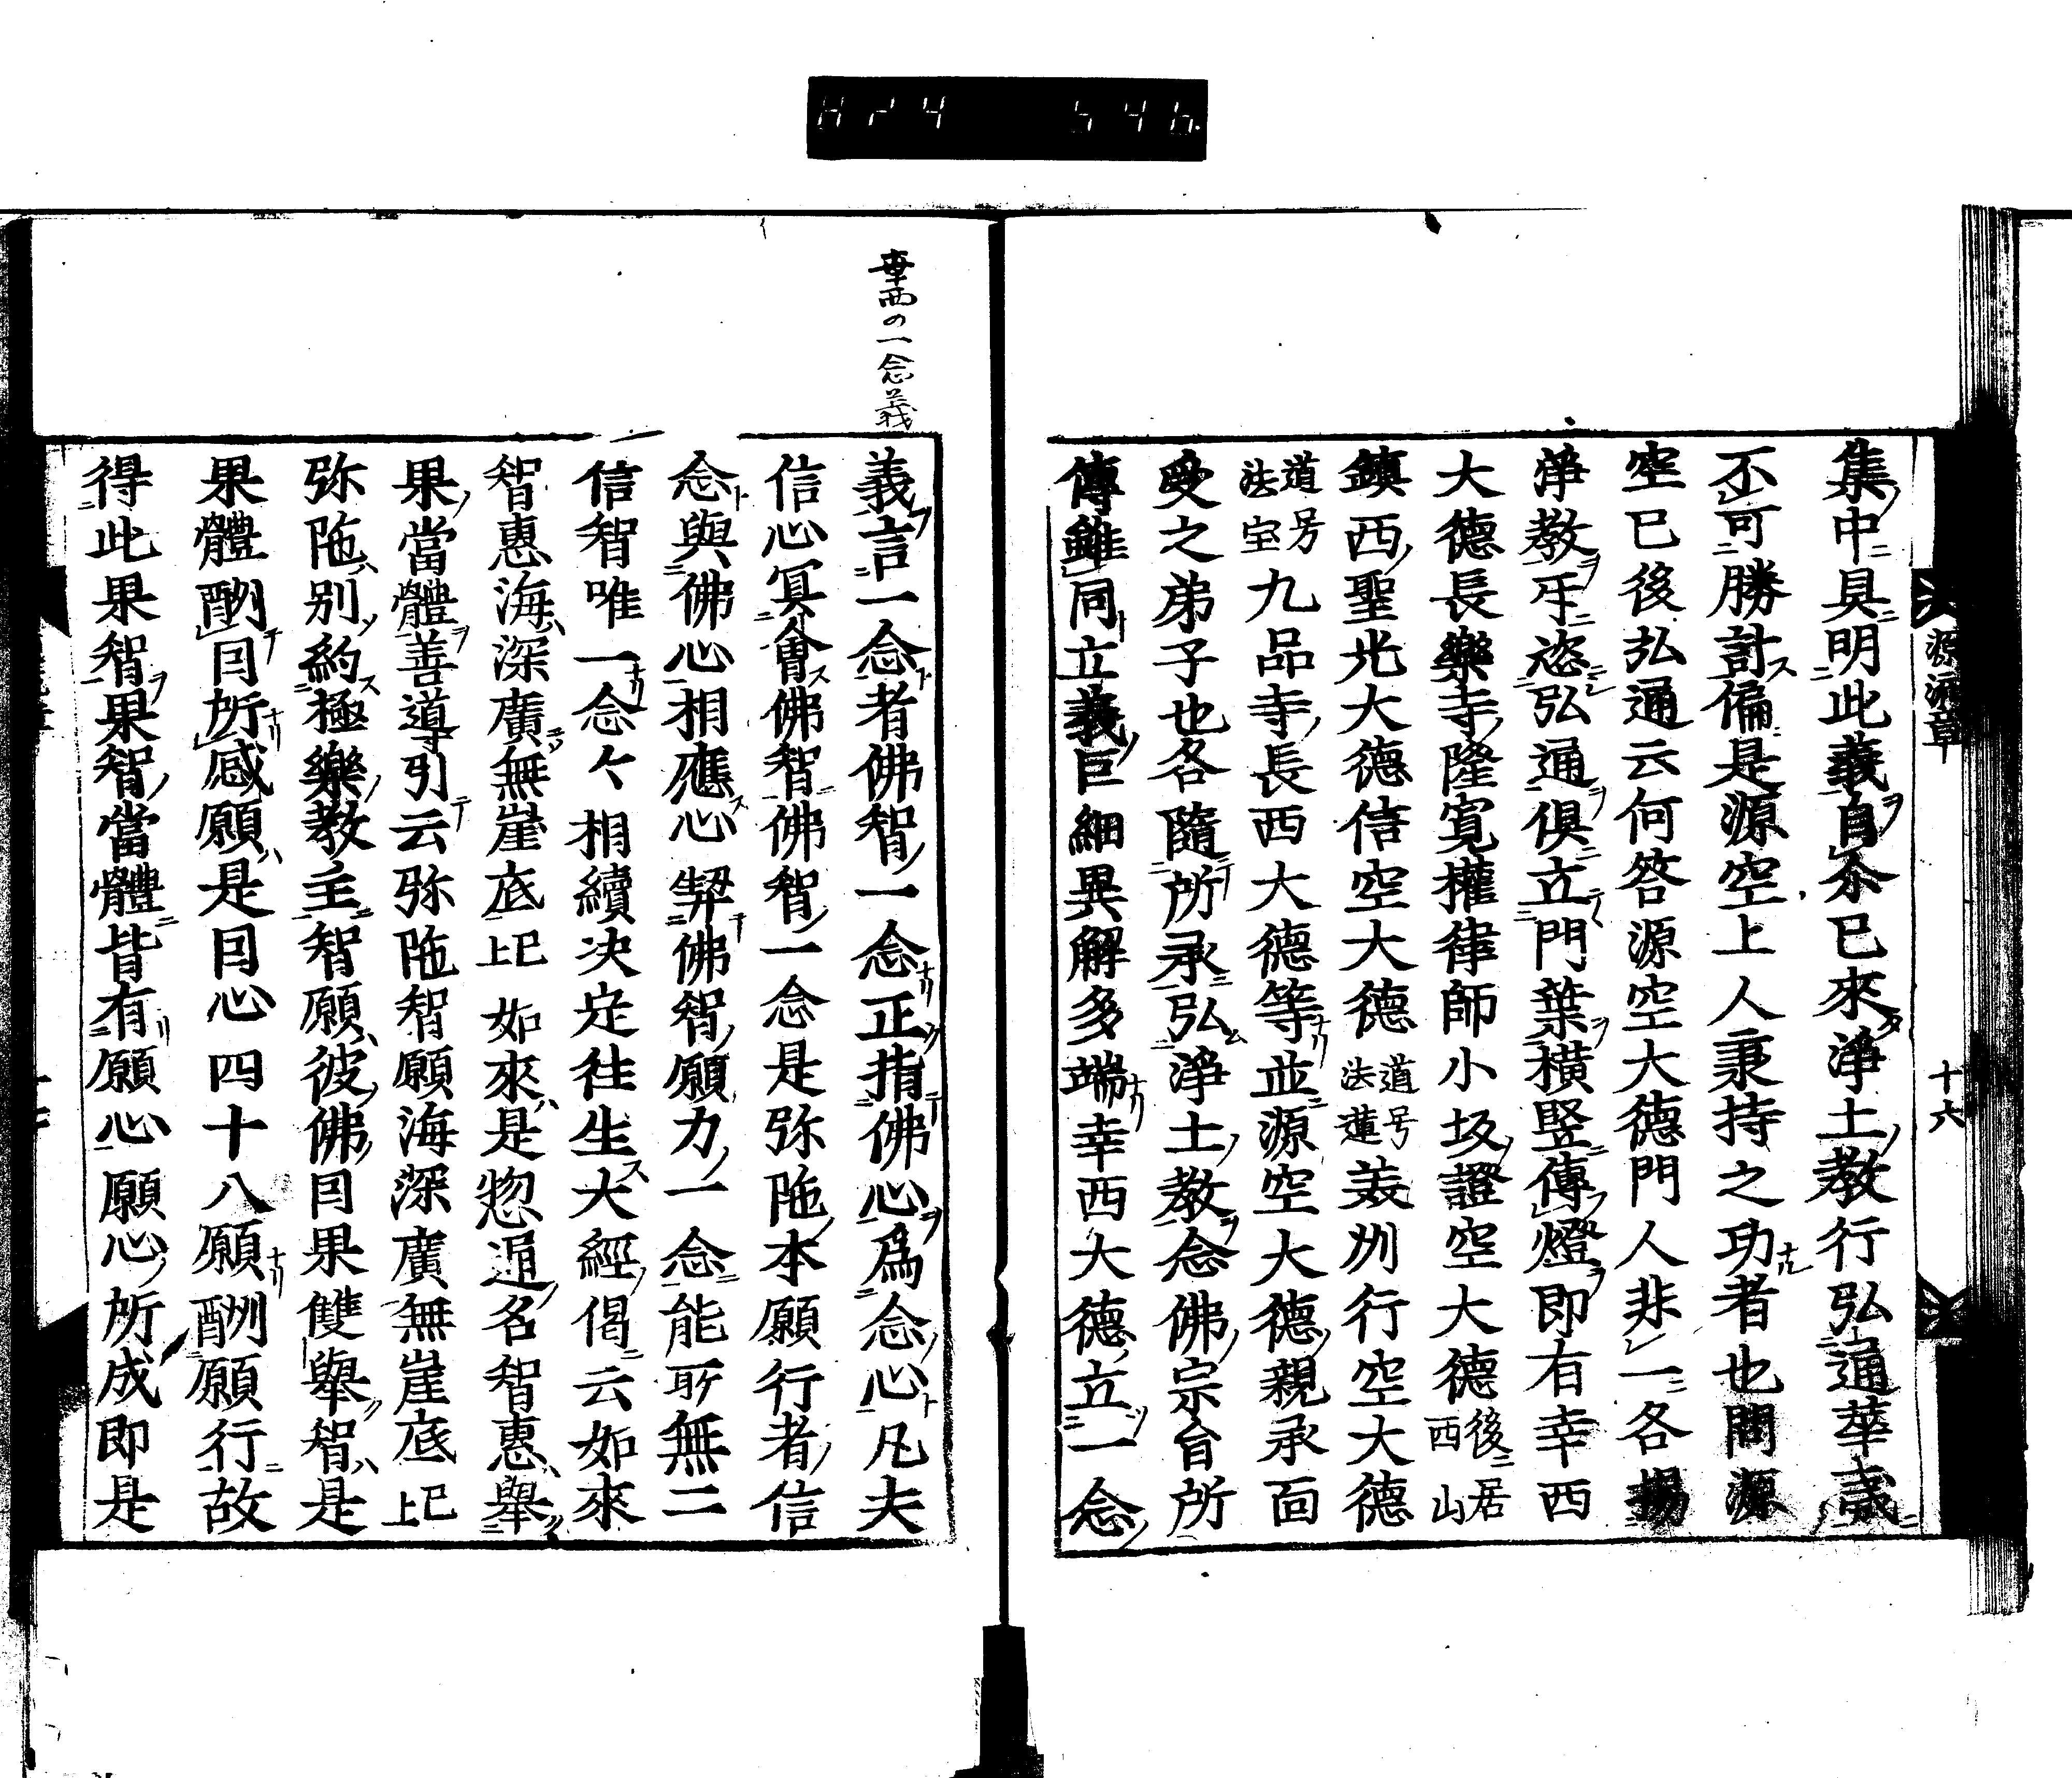 824 546
源流章 十六
集中具明此義自尒已來淨土教行弘通華夷
不可勝計偏是源空上人秉持之功者也問源
空已後弘通云何答源空大德門人非一各揚
淨教互恣弘通俱立門葉橫竪傳燈即有幸西
大德長樂寺隆寬權律師小坂證空大德後居西山
鎮西聖光大德信空大德道号法蓮美州行空大德
道号法宝九品寺長西大德等並源空大德親承面
受之弟子也各隨所承弘淨土教念佛宗旨所
傳雖同立義巨細異解多端幸西大德立一念
幸西の一念義
義言一念者佛智一念正指佛心爲念心凡夫
信心冥會佛智佛智一念是弥陁本願行者信
念與佛心相應心契佛智願力一念能所無二
信智唯一念々相續決定往生大經偈云如來
智惠海深廣無崖底已上如來是惣通名智惠舉
果當體善導引云弥陁智願海深廣無崖底已上
弥陁別約極樂教主智願彼佛因果雙舉智是
果體酬因所感願是因心四十八願酬願行故
得此果智果智當體皆有願心願心所成即是